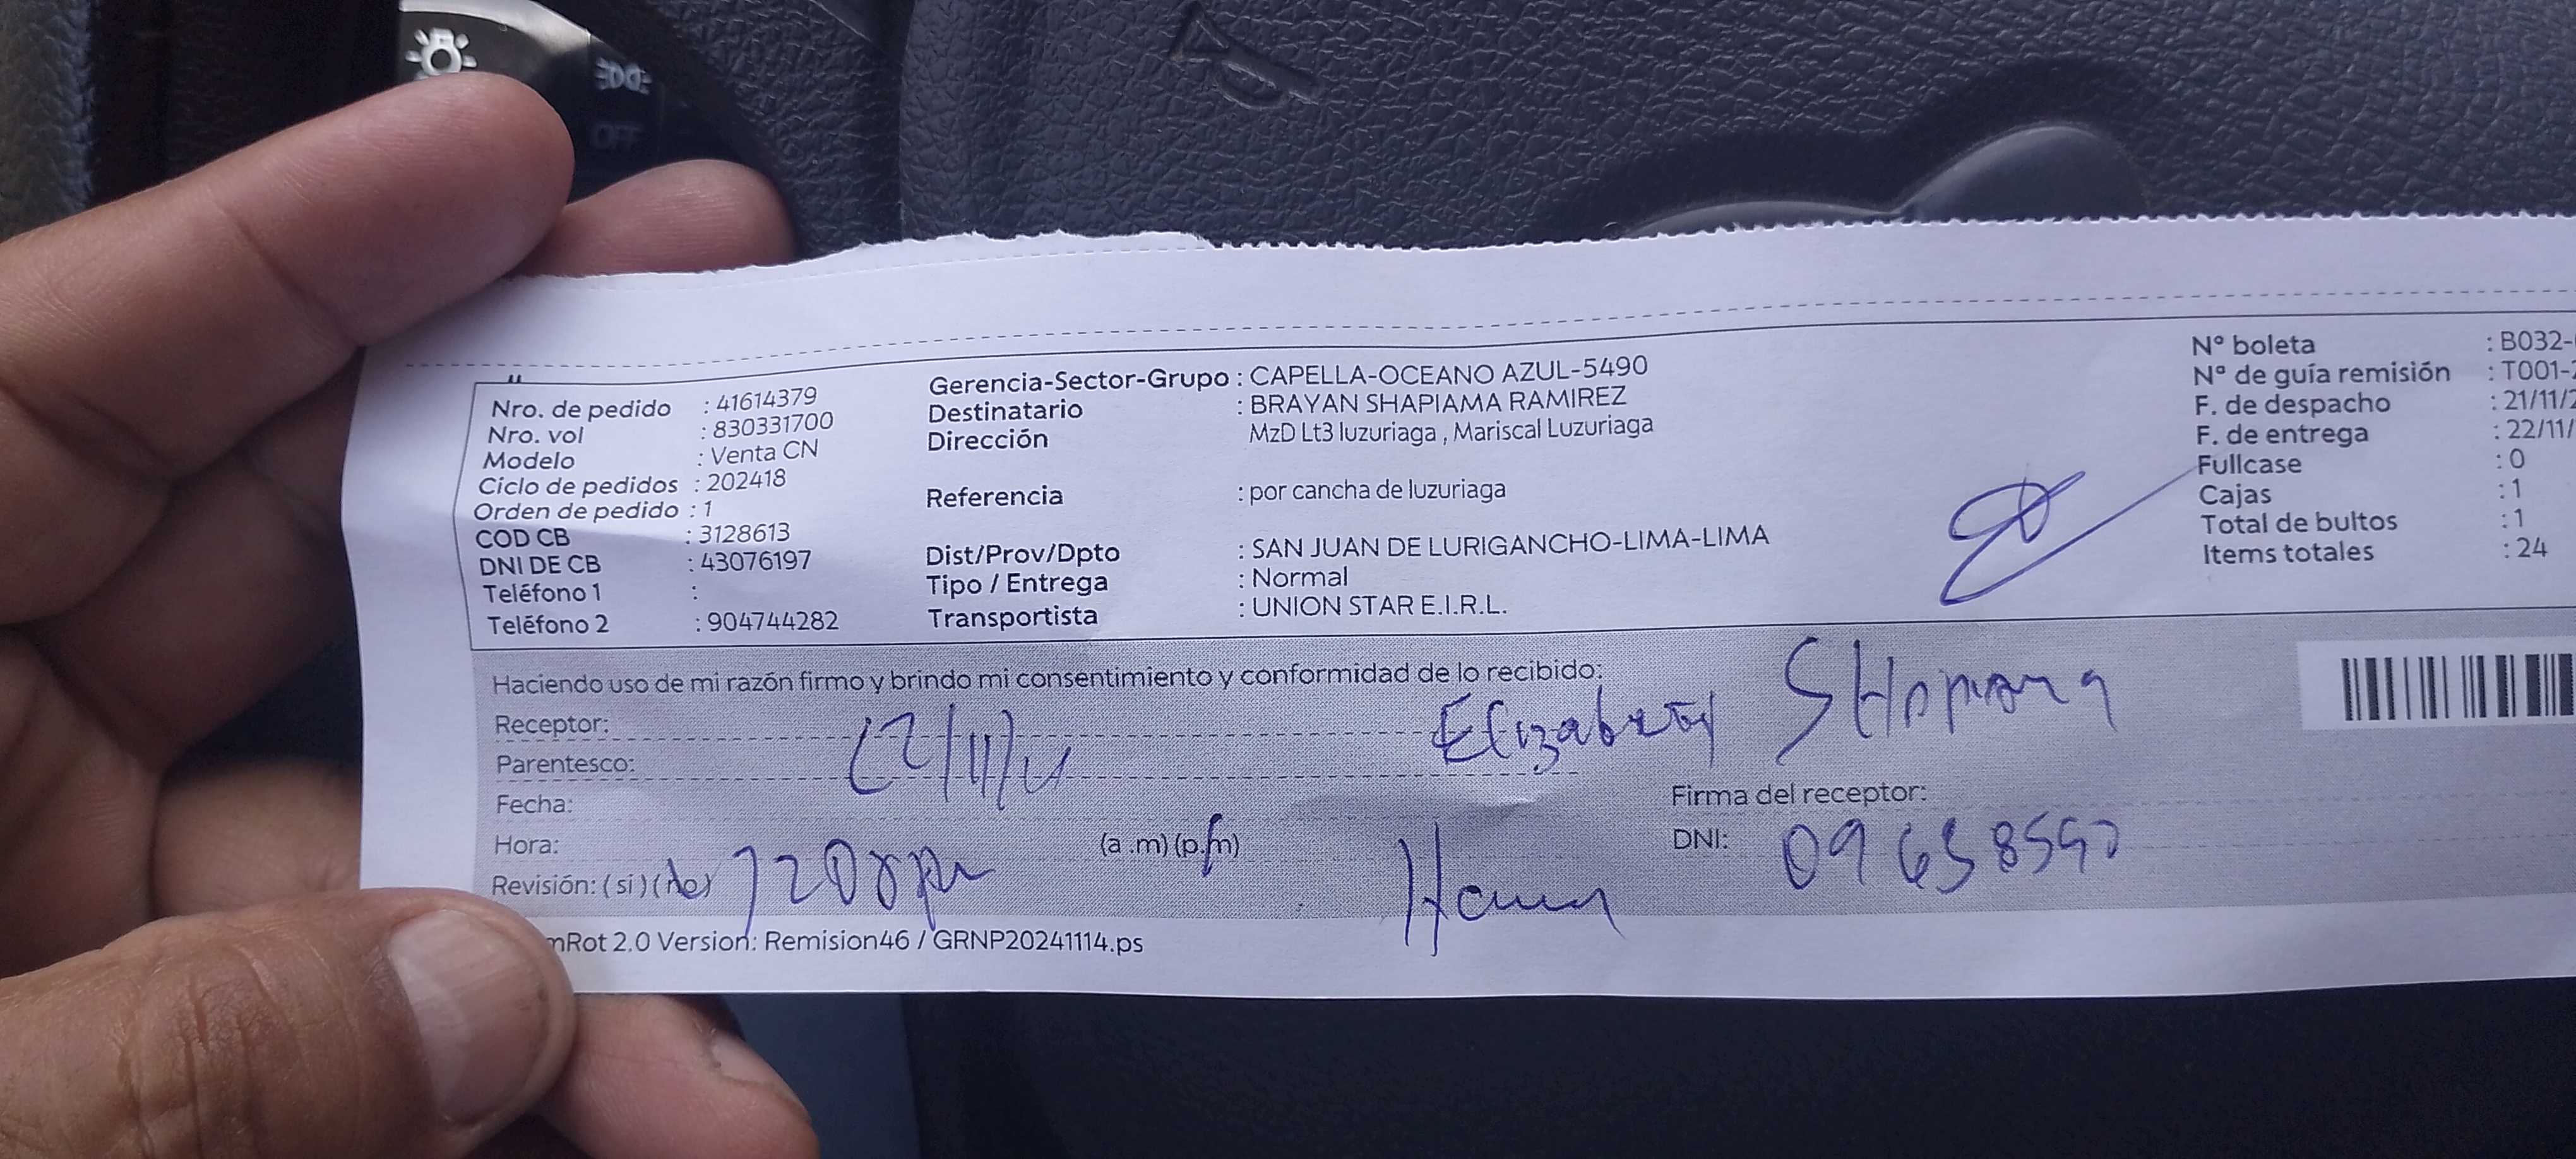 OFF
Nro. de pedido : 41614379
Nro. vol : 830331700
Modelo : Venta CN
Ciclo de pedidos : 202418
Orden de pedido : 1
COD CB : 3128613
DNI DE CB : 43076197
Teléfono 1 :
Teléfono 2 : 904744282
Gerencia-Sector-Grupo : CAPELLA-OCEANO AZUL-5490
Destinatario : BRAYAN SHAPIAMA RAMIREZ
Dirección MzD Lt3 luzuriaga , Mariscal Luzuriaga
Referencia : por cancha de luzuriaga
Dist/Prov/Dpto : SAN JUAN DE LURIGANCHO-LIMA-LIMA
Tipo / Entrega : Normal
Transportista : UNION STAR E.I.R.L.
Nº boleta : B032-
Nº de guía remisión : T001-
F. de despacho : 21/11/2
F. de entrega : 22/11/
Fullcase : 0
Cajas : 1
Total de bultos : 1
Items totales : 24
Haciendo uso de mi razón firmo y brindo mi consentimiento y conformidad de lo recibido:
Receptor: Elizabeth
Parentesco:
Fecha:
Hora: (a .m) (p.m)
Revisión: (si) (no)
Firma del receptor:
DNI:
mRot 2.0 Version: Remision46 / GRNP20241114.ps